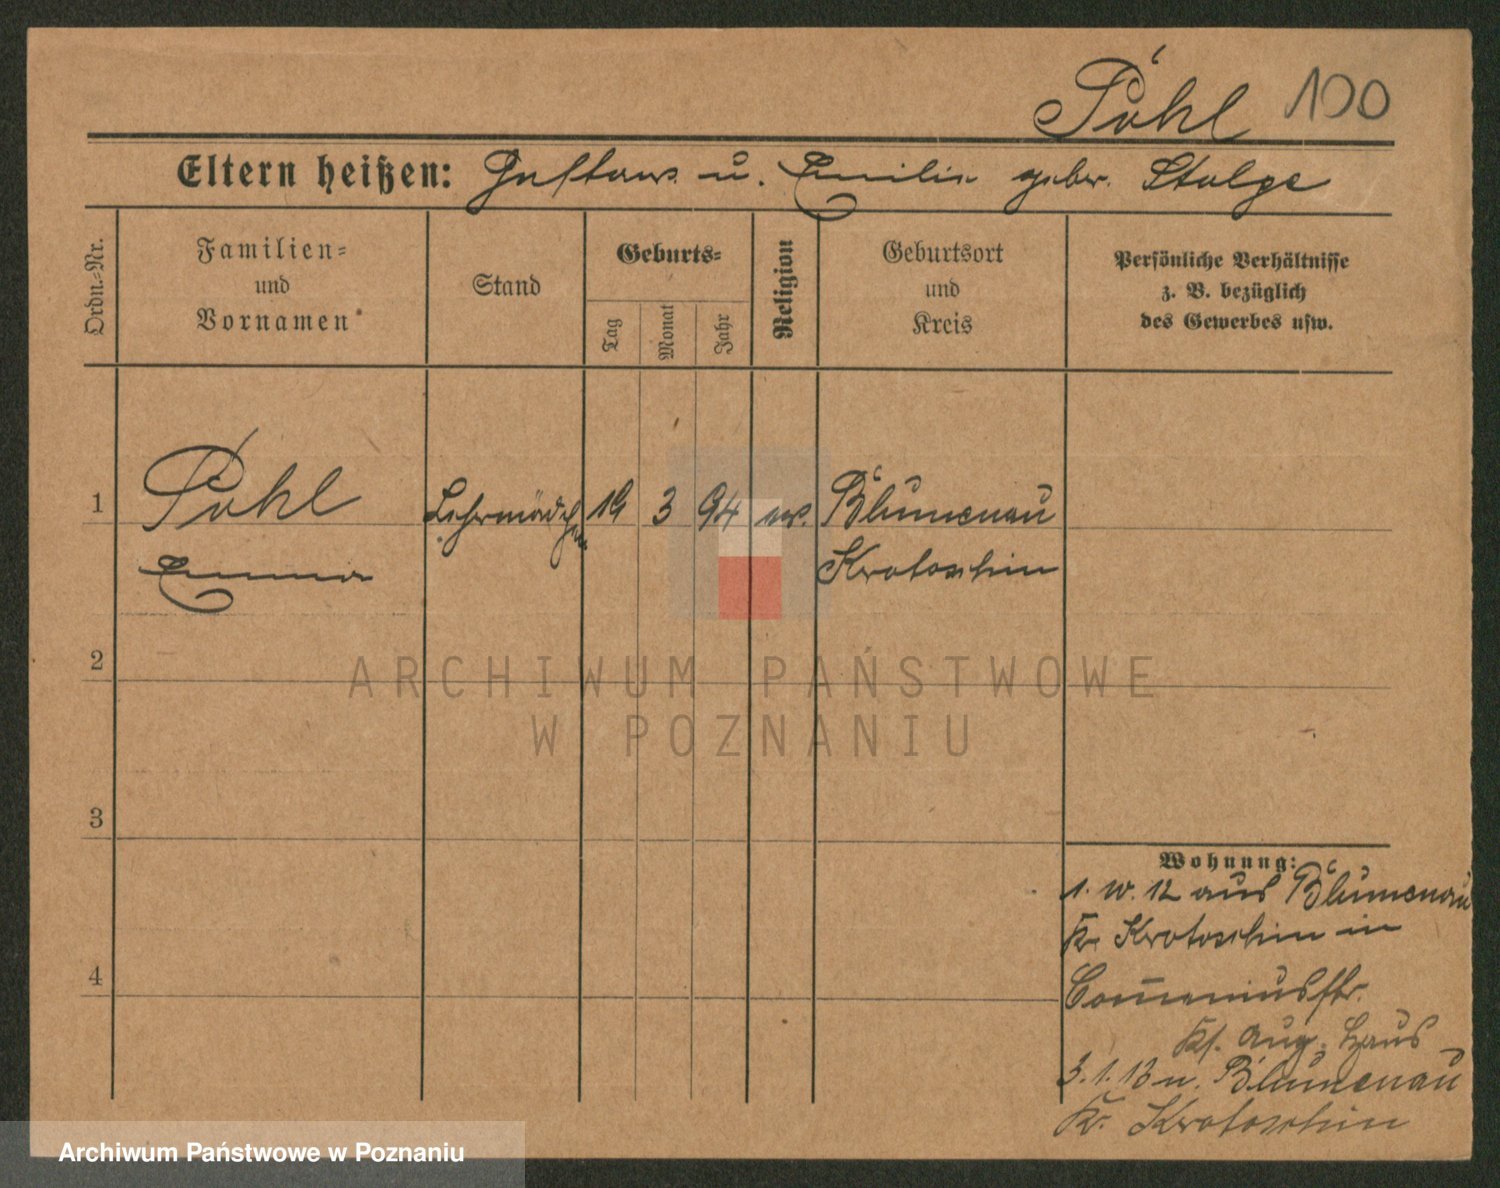 Pohl 100
Eltern heißen: Gustav u. Emilie gebor. Stolpe
Ordn.-Nr.
Familien-
und
Vornamen
Stand
Geburts-
Tag
Monat
Jahr
Religion
Geburtsort
und
Kreis
Persönliche Verhältnisse
z. B. bezüglich
des Gewerbes usw.
1 Pohl Lehrmädchen 19 3 94 ev. Blumenau
Emma Krotoschin
2
3
4
Wohnung:
1. 10. 12 aus Blumenau
Kr. Krotoschin in
Comeniusstr.
Ks. Aug. Haus
3. 1. 13 n. Blumenau
Kr. Krotoschin
ARCHIWUM PAŃSTWOWE
W POZNANIU
Archiwum Państwowe w Poznaniu